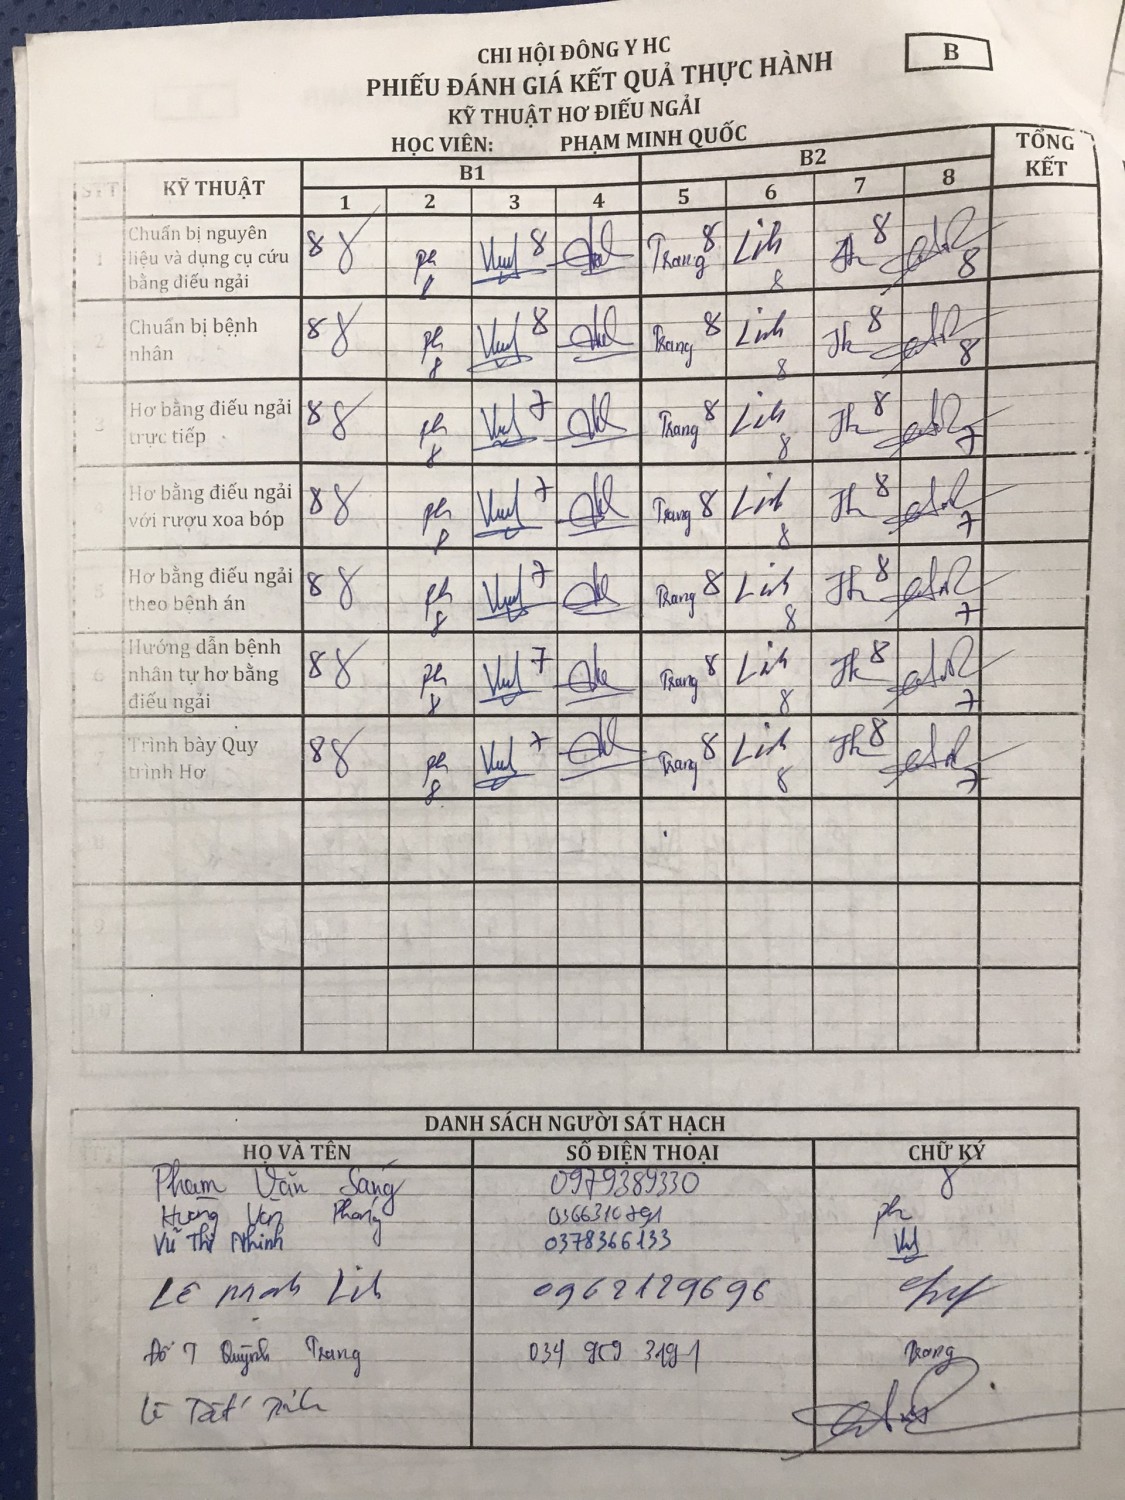 CHI HỘI ĐÔNG Y HC
B
PHIẾU ĐÁNH GIÁ KẾT QUẢ THỰC HÀNH
KỸ THUẬT HƠ ĐIẾU NGẢI
HỌC VIÊN: PHẠM MINH QUỐC
STT KỸ THUẬT B1 B2 TỔNG KẾT
1 2 3 4 5 6 7 8
1 Chuẩn bị nguyên liệu và dụng cụ cứu bằng điếu ngải 8 ph 8 8 Trang 8 Linh 8 8 8
2 Chuẩn bị bệnh nhân 8 ph 8 8 Trang 8 Linh 8 8 8
3 Hơ bằng điếu ngải trực tiếp 8 ph 8 7 Trang 8 Linh 8 8 7
4 Hơ bằng điếu ngải với rượu xoa bóp 8 ph 8 7 Trang 8 Linh 8 8 7
5 Hơ bằng điếu ngải theo bệnh án 8 ph 8 7 Trang 8 Linh 8 8 7
6 Hướng dẫn bệnh nhân tự hơ bằng điếu ngải 8 ph 8 7 Trang 8 Linh 8 8 7
7 Trình bày Quy trình Hơ 8 ph 8 7 Trang 8 Linh 8 8 7
8
9
10
DANH SÁCH NGƯỜI SÁT HẠCH
HỌ VÀ TÊN SỐ ĐIỆN THOẠI CHỮ KÝ
Phạm Văn Sáng 0979389330
Văn Phong ph
Vũ Thị Nhinh 0378366133
Lê Linh 0962129696
Đỗ T Quỳnh Trang Trang
Lê